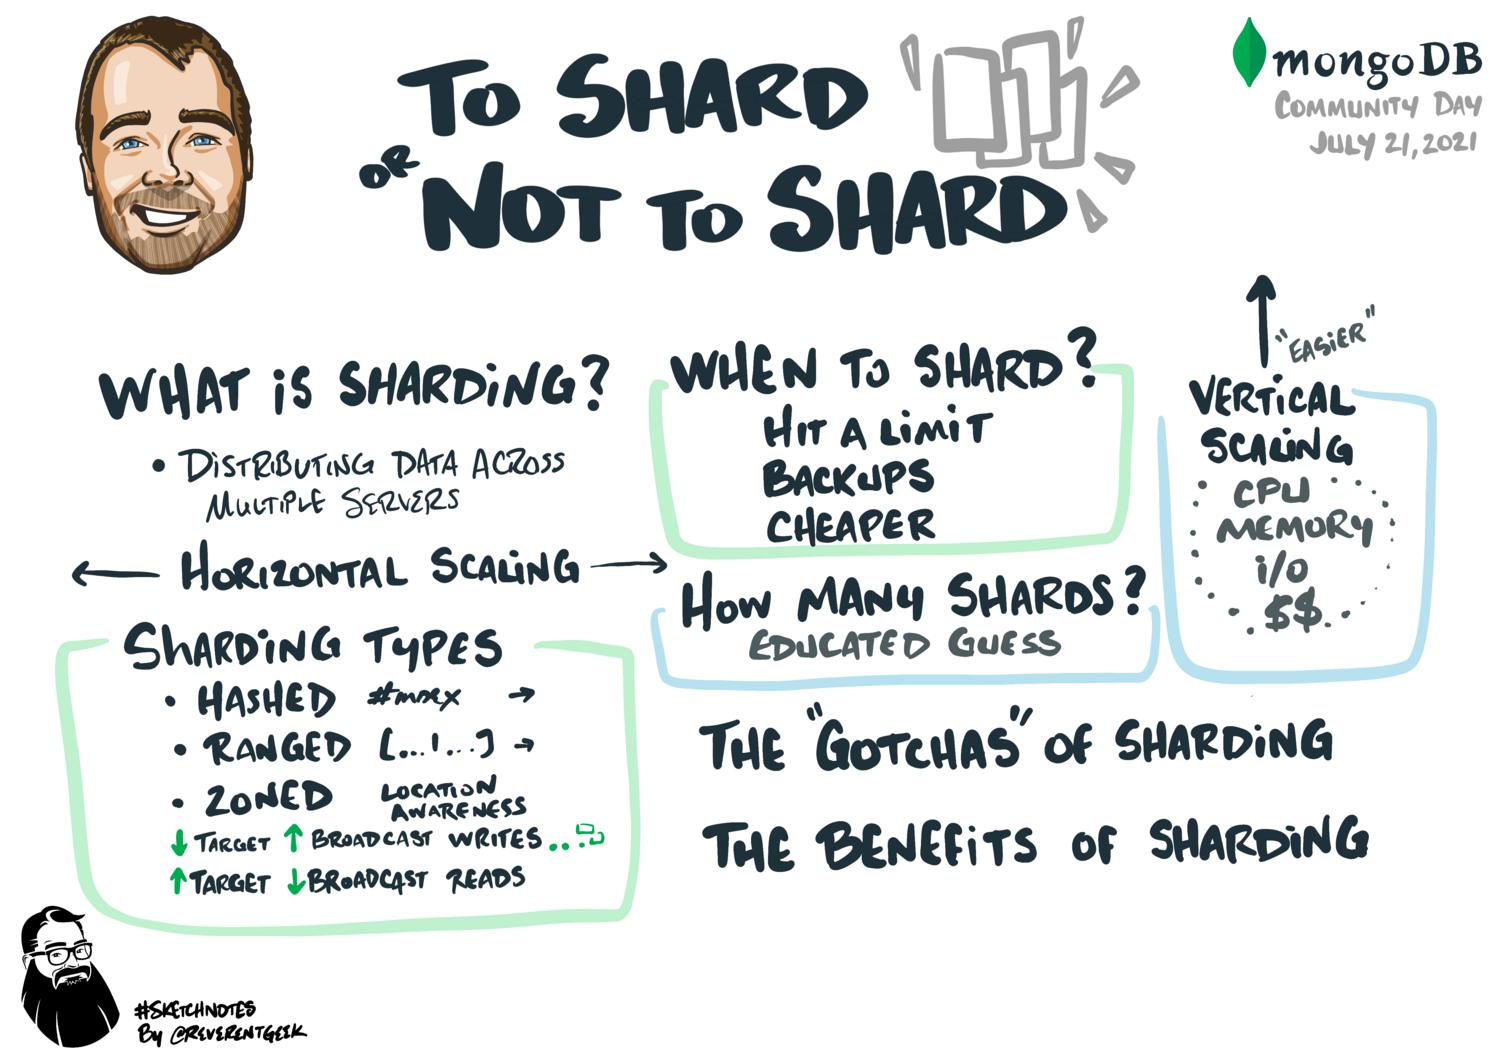 To SHARD
OR
NOT To SHARD
mongoDB
COMMUNITY DAY
JULY 21, 2021
WHAT iS SHARDiNG?
• DISTRIBUTING DATA ACROSS
MULTIPLE SERVERS
← HORIZONTAL SCALING →
SHARDING TYPES
• HASHED →
• RANGED [...|...] →
• ZONED LOCATION
AWARENESS
↓ TARGET ↑ BROADCAST WRITES...
↑ TARGET ↓ BROADCAST READS
WHEN TO SHARD?
HIT A LIMIT
BACKUPS
CHEAPER
HOW MANY SHARDS?
EDUCATED GUESS
"EASiER"
VERTiCAL
SCALING
CPU
MEMORY
i/o
$$
THE "GOTCHAS" OF SHARDiNG
THE BENEFiTS OF SHARDiNG
#SKETCHNOTES
By @REVERENTGEEK